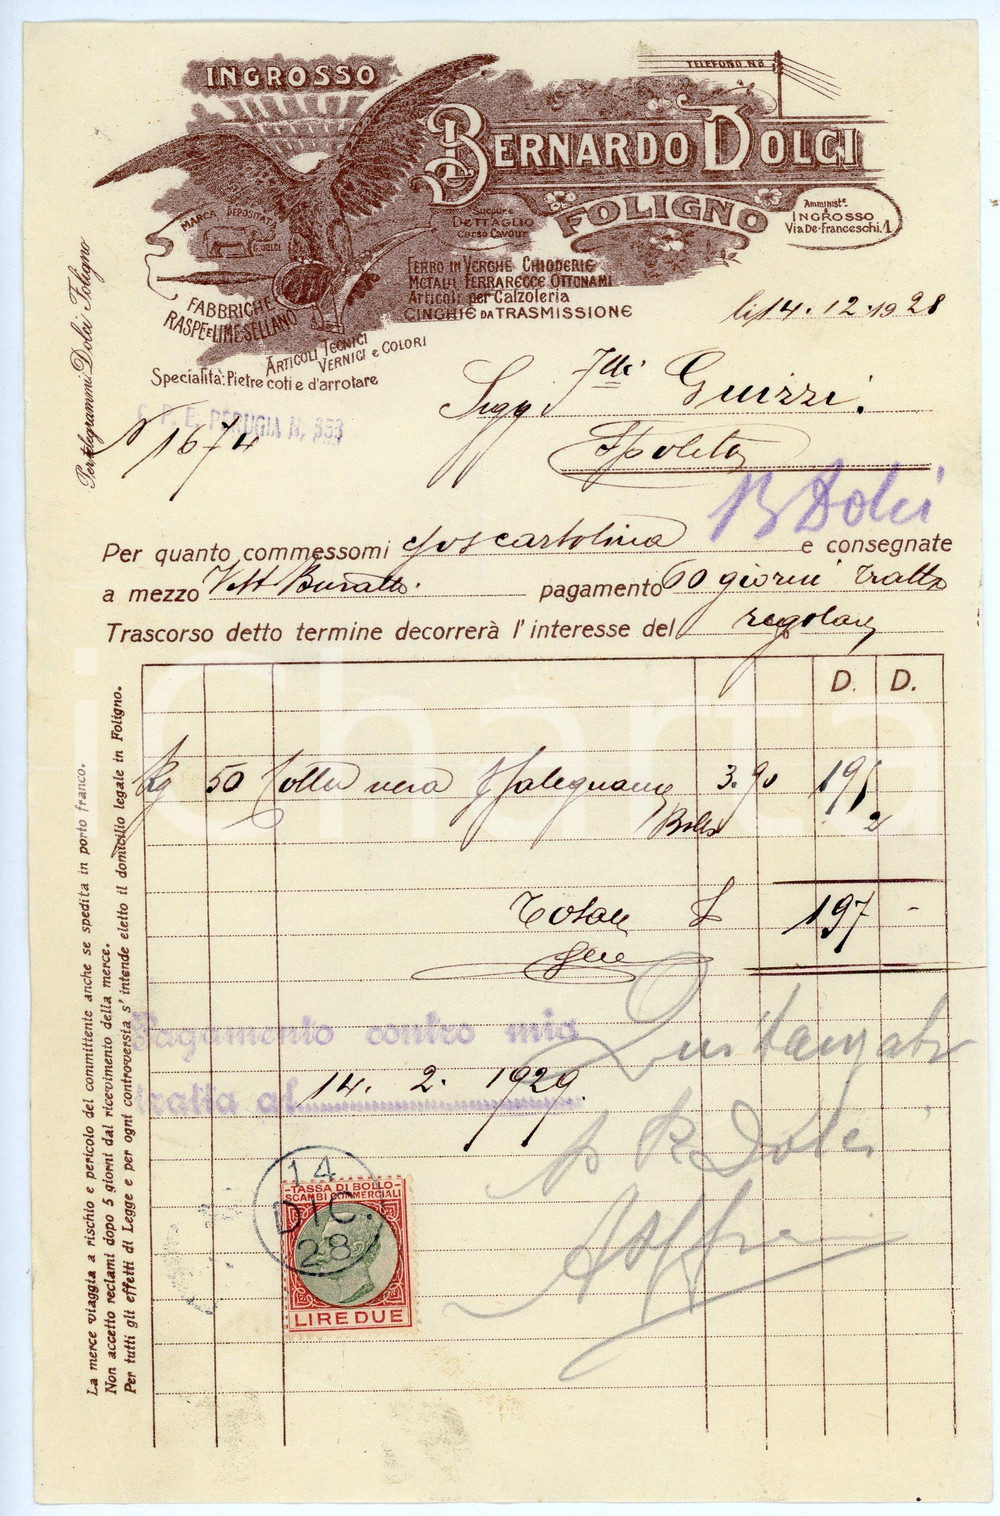 INGROSSO
TELEFONO N. 8
BERNARDO DOLCI
FOLIGNO
MARCA DEPOSITATA
B. DOLCI
DETTAGLIO
Corso Cavour
Amministe.
INGROSSO
Via De-Franceschi, 1
FABBRICHE
RASPE e LIME SELLANO
FERRO IN VERGHE CHIODERIE
METALLI FERRARECCE OTTONAMI
Articoli per Calzoleria
CINGHIE DA TRASMISSIONE
ARTICOLI TECNICI
VERNICI e COLORI
Specialità: Pietre coti e d'arrotare
Per telegrammi Dolci Foligno
li 14. 12. 1928
C. P. E. PERUGIA N. 353
N 1674
Sigg. Guizzi.
Spoleto
B Dolci
Per quanto commessomi cartolina e consegnate
a mezzo Vett Buratti. pagamento 60 giorni tratta
Trascorso detto termine decorrerà l'interesse del regolare
D. D.
Kg 50 Colla vera 3.90 195
Bollo 2
Totale £ 197 -
Pagamento contro mia
tratta al 14. 2. 1929.
Quitanzata
p B Dolci
14
DIC.
28
TASSA DI BOLLO
SCAMBI COMMERCIALI
LIRE DUE
La merce viaggia a rischio e pericolo del committente anche se spedita in porto franco.
Non accetto reclami dopo 5 giorni dal ricevimento della merce.
Per tutti gli effetti di Legge e per ogni controversia s' intende eletto il domicilio legale in Foligno.
iCharta